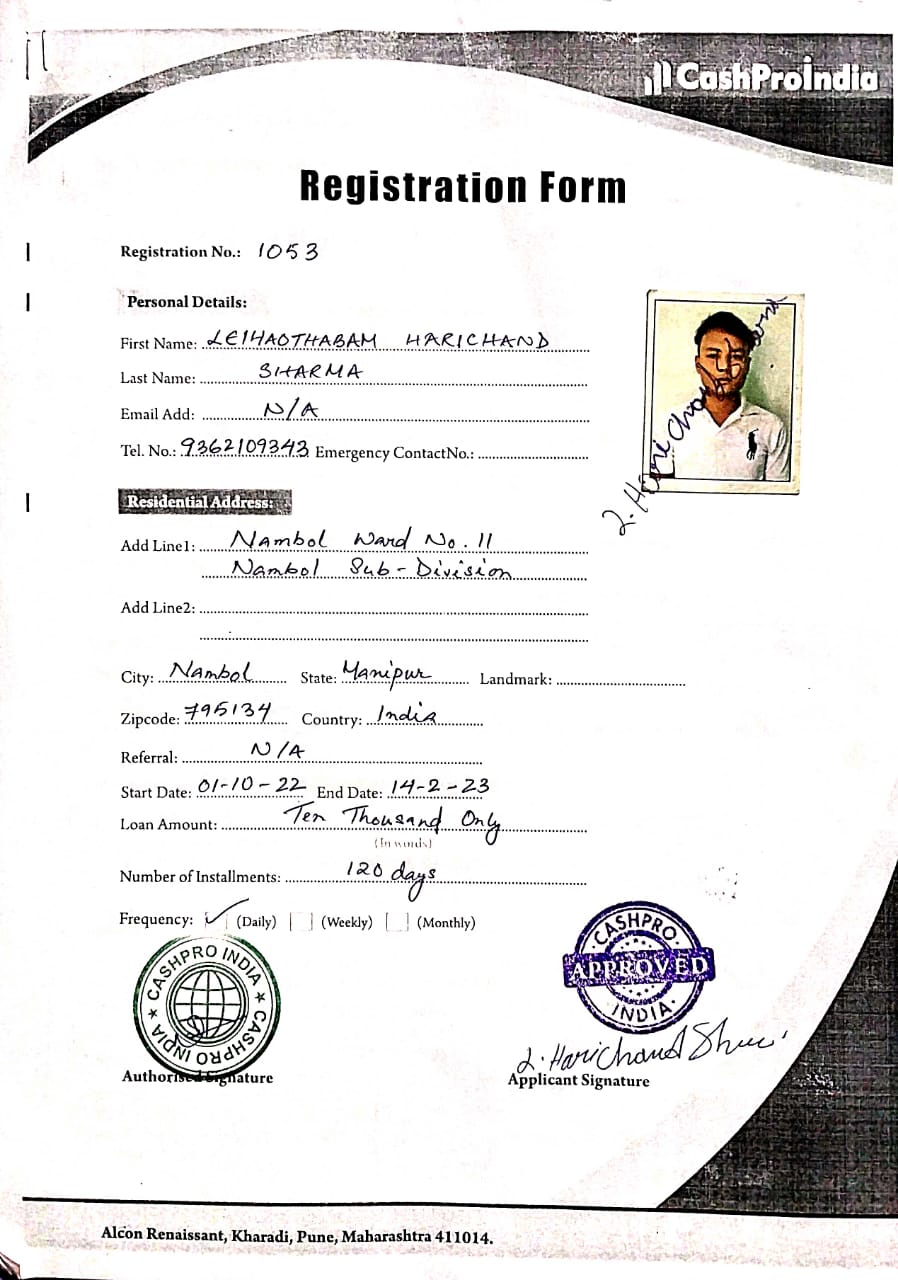 CashProIndia
Registration Form
Registration No.: 1053
Personal Details:
First Name: LEIHAOTHABAM HARICHAND
Last Name: SHARMA
Email Add: N/A
Tel. No.: 9362109343 Emergency ContactNo.:
L. Harichand Sharma
Residential Address:
Add Line1: Nambol Ward No. 11
Nambol Sub-Division
Add Line2:
City: Nambol State: Manipur Landmark:
Zipcode: 795134 Country: India
Referral: N/A
Start Date: 01-10-22 End Date: 14-2-23
Loan Amount: Ten Thousand Only
(In words)
Number of Installments: 120 days
Frequency: (Daily) (Weekly) (Monthly)
CASHPRO INDIA ★ CASHPRO INDIA ★
CASHPRO
APPROVED
INDIA
L. Harichand
Authorised Signature
Applicant Signature
Alcon Renaissant, Kharadi, Pune, Maharashtra 411014.